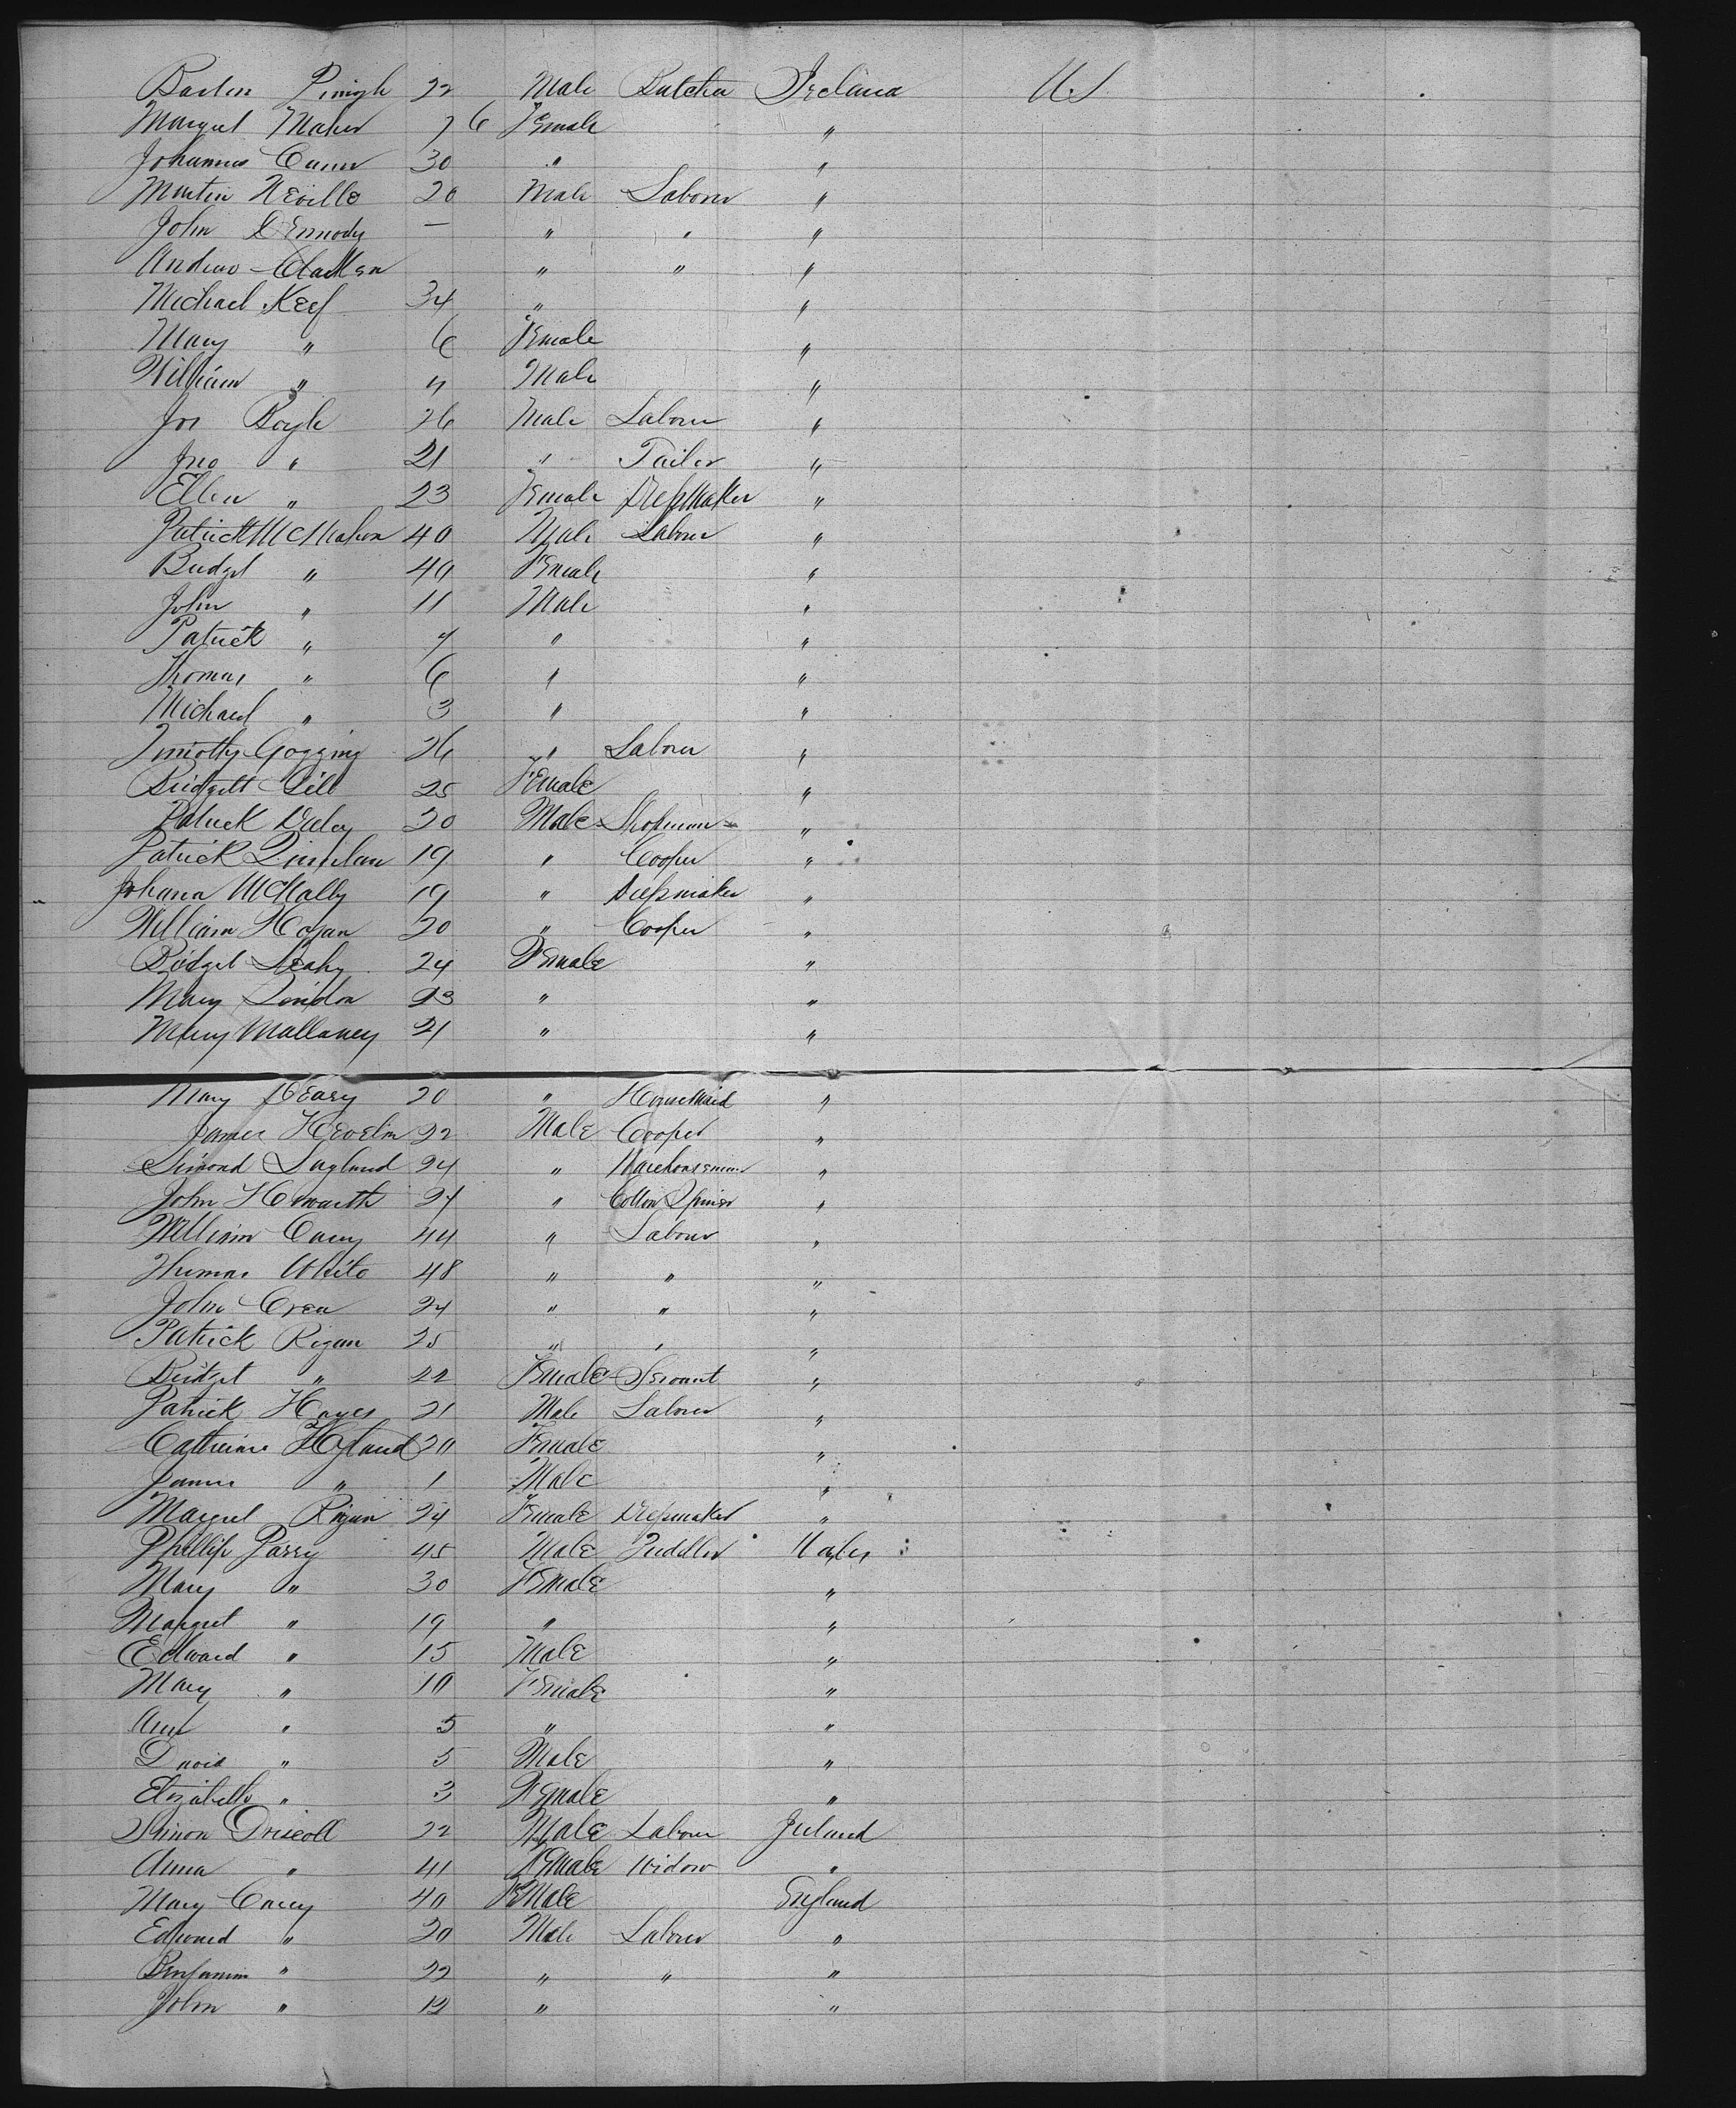 Pinigh 22 Male Butcher Ireland U.S
Margret Maher 7 6 Female "
Johanna 30 " "
Martin Neville 20 Male Labour "
John Kennody — " " "
Andrew " " "
Michael Keef 34 " "
Mary " 6 Female "
William " 4 Male "
Jos Boyle 26 Male Labour "
Jno " 21 " Tailor "
Ellen " 23 Female Dressmaker "
Patrick McMahon 40 Male Labour "
Bridget " 40 Female "
John " 11 Male "
Patrick " 7 " "
Thomas " 6 " "
Michael " 3 " "
Timothy Gogging 26 " Labour "
Bridgett 25 Female "
Patrick 20 Male Shopman "
Patrick Quinlan 19 " Cooper "
Johana McNally 19 " Dressmaker "
William Hogan 20 " Cooper "
Bridget Leahy 24 Female "
Mary 23 " "
Mary Mallaney 21 " "
Mary 20 " Housemaid "
James 22 Male Cooper "
24 " Warehouseman "
John Howarth 24 " Cotton Spiner "
William Carey 44 " Labour "
Thomas White 48 " " "
John Crea 24 " " "
Patrick Rigan 25 " " "
Bridget " 22 Female Servant "
Patrick Hayes 21 Male Labour "
Catherine Hyland 20 Female "
James " 1 Male "
Margret Rigan 24 Female Dressmaker "
Phillip Parry 45 Male Puddler Wales
Mary " 30 Female "
Margret " 19 " "
Edward " 15 Male "
Mary " 10 Female "
Ann " 5 " "
David " 5 Male "
Elizabeth " 3 Female "
Simon Driscoll 22 Male Labour Ireland
Anna " 41 Female Widow "
Mary Carey 40 Female England
Edward " 20 Male Labour "
Benjamin " 22 " " "
John " 12 " "